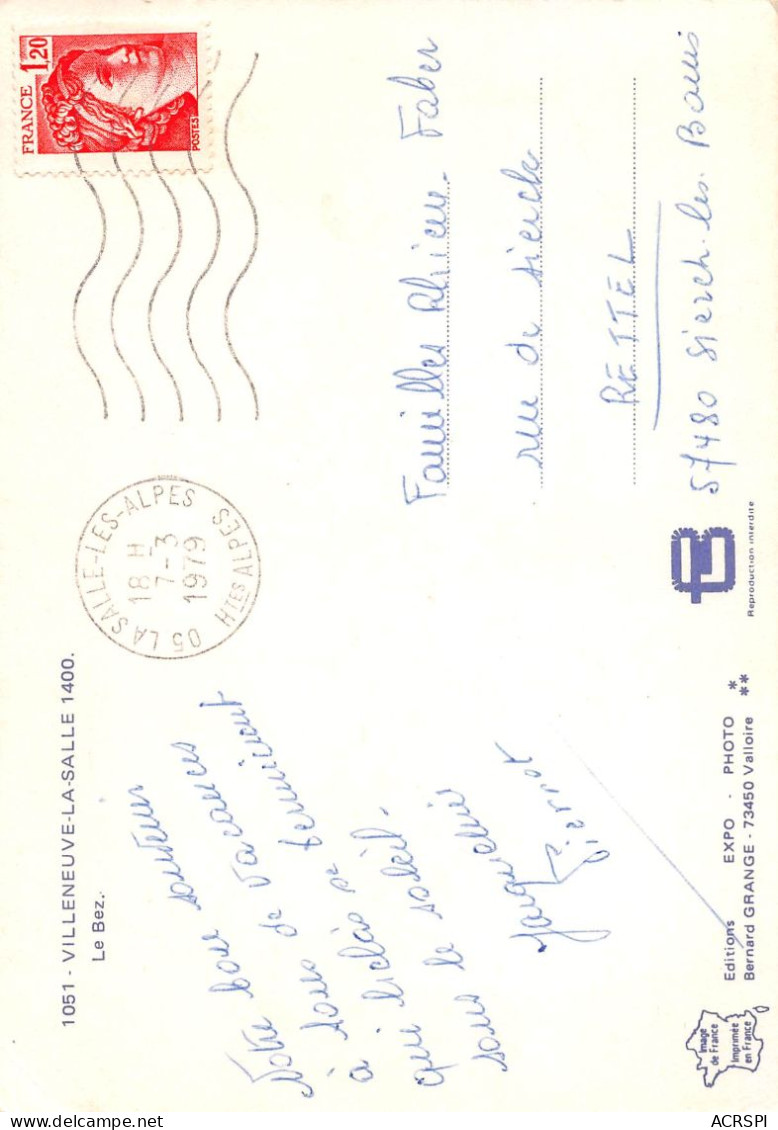 1051 - VILLENEUVE-LA-SALLE 1400.
Le Bez.
Notre bon souvenir
à tous de vacances
qui hélas se terminent
sous le soleil.
Jacqueline
Pierrot
05 LA SALLE-LES-ALPES
18 H
7-3
1979
HTES ALPES
FRANCE 1,20
POSTES
Familles Faber
rue de sierck
RETTEL
57480 Sierck-les-Bains
Editions EXPO - PHOTO *
Bernard GRANGE - 73450 Valloire **
Reproduction interdite
Image
de France
Imprimée
en France
ACRSPI